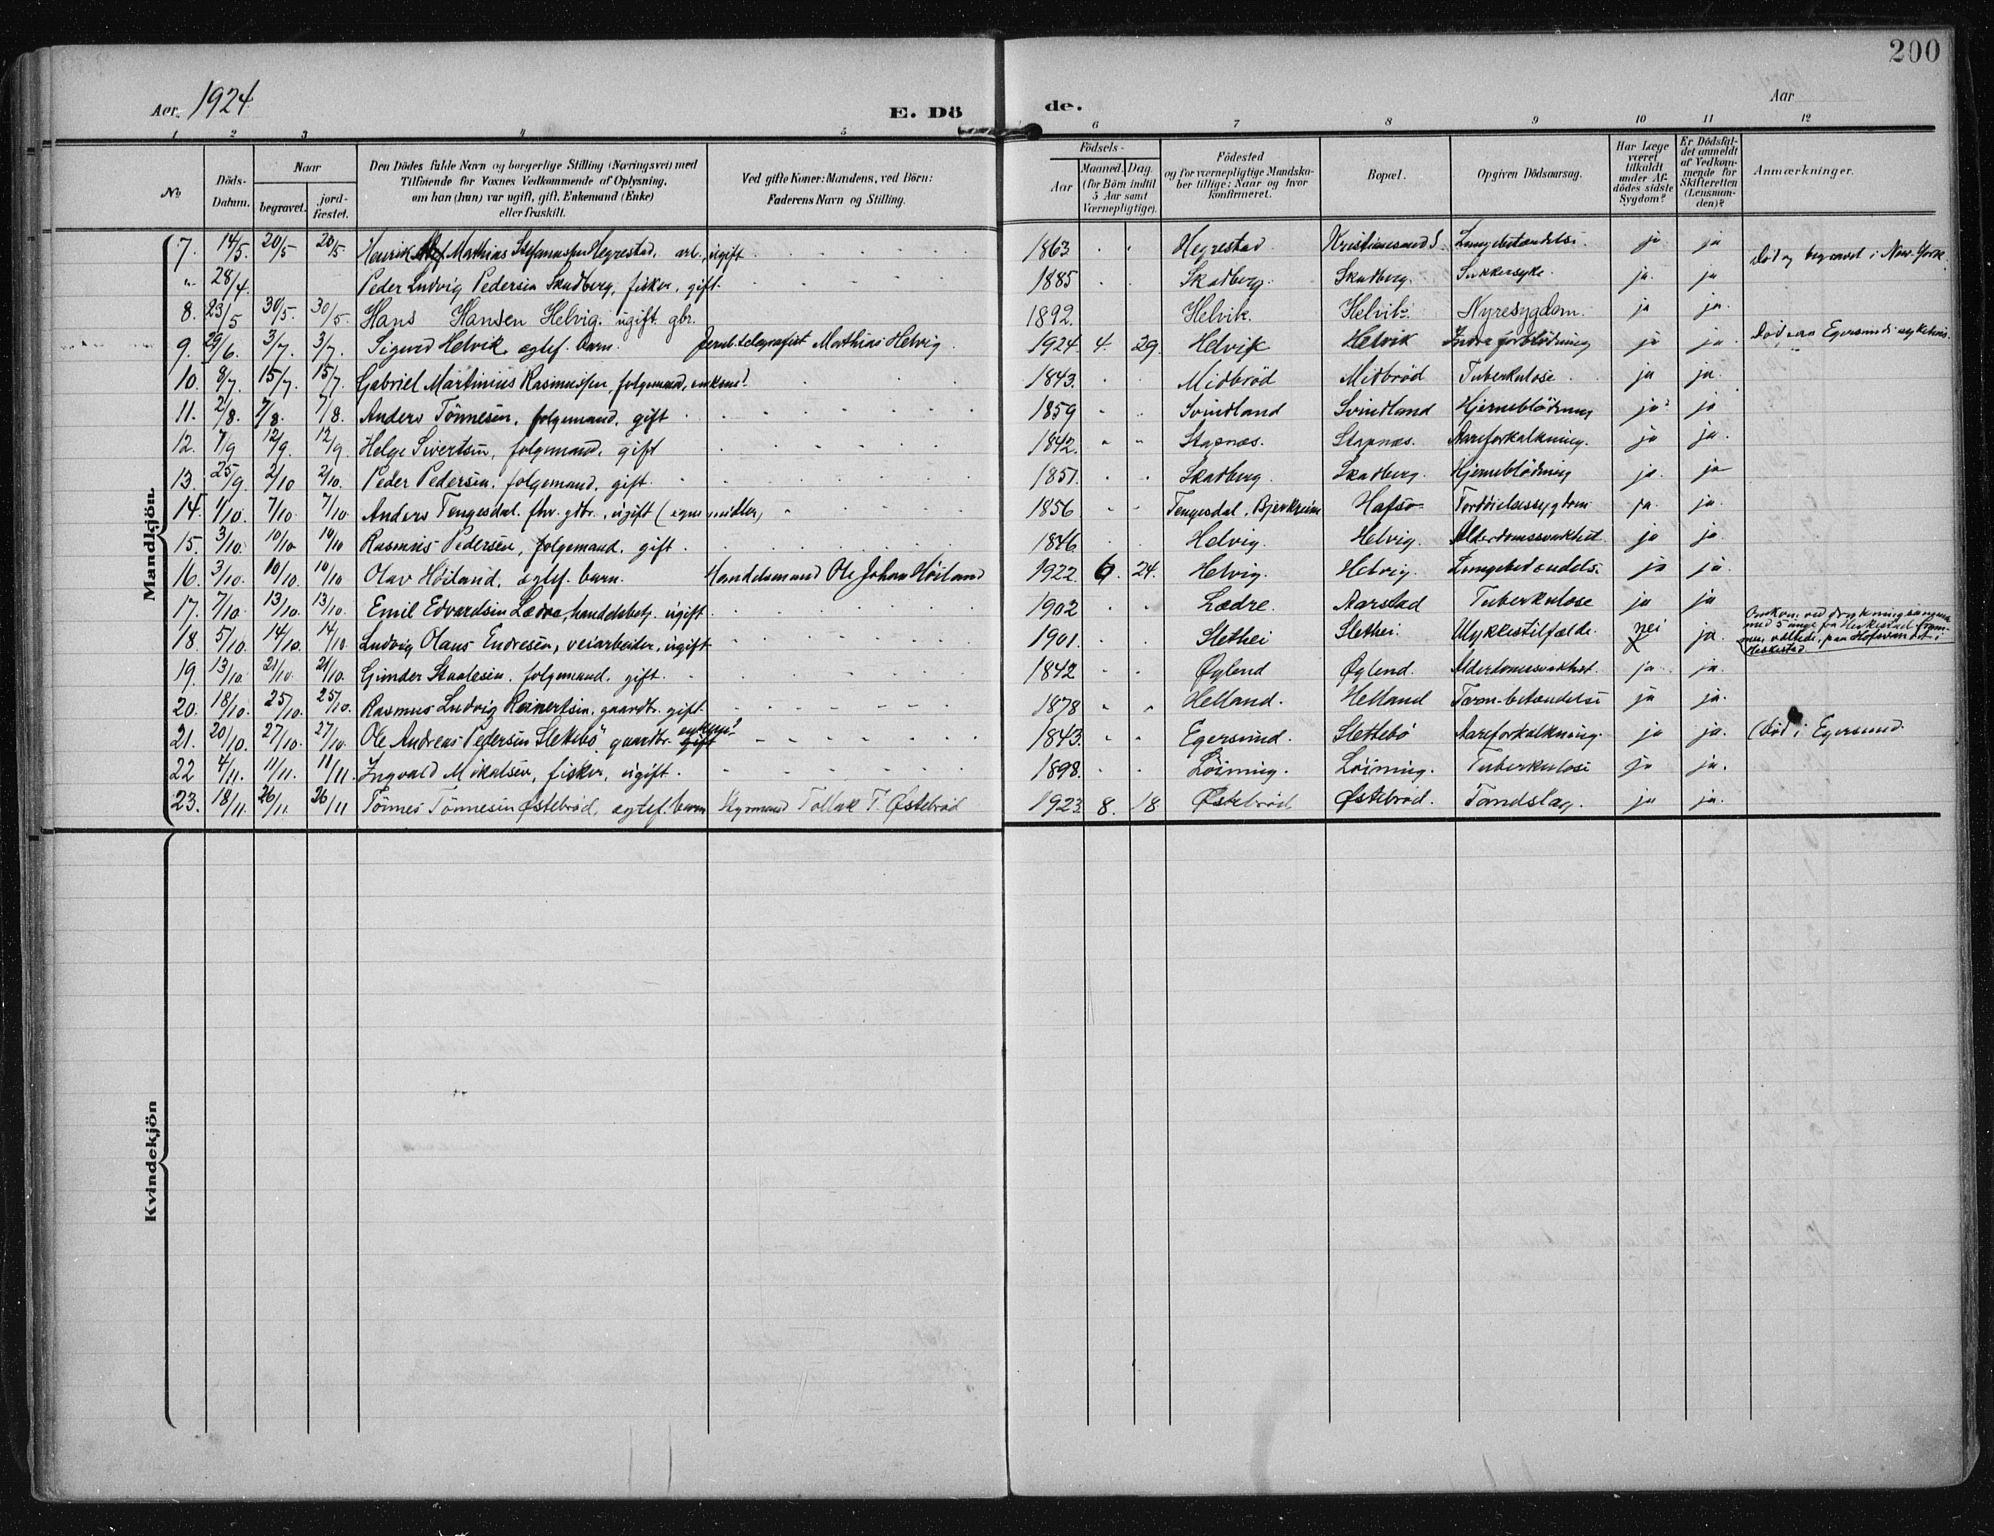 200
Aar 1924
E. Dö
de.
Aar
1 2 3 4 5 6 7 8 9 10 11 12
No
Döds-Datum.
Naar
begravet.
jordfæstet.
Den Dödes fulde Navn og borgerlige Stilling (Næringsvei) med Tilföiende for Voxnes Vedkommende af Oplysning, om han (hun) var ugift, gift, Enkemand (Enke) eller fraskilt.
Ved gifte Koner: Mandens, ved Börn: Faderens Navn og Stilling.
Födsels-
Aar
Maaned. Dag.
(for Börn indtil 5 Aar samt Værnepligtige).
Födested
og for værnepligtige Mandskaber tillige: Naar og hvor konfirmeret.
Bopæl.
Opgiven Dödsaarsag.
Har Læge været tilkaldt under Afdödes sidste Sygdom?
Er Dödsfaldet anmeldt af Vedkommende for Skifteretten (Lensmanden)?
Anmærkninger.
Mandkjön.
7. 14/5. 20/5 20/5 Henrik Mathias Stefanussen Hegrestad, arb., ugift 1863 Hegrestad Kristianssand S. Lungebetændelse ja ja
" 28/4. Peder Ludvig Pedersen Skadberg, fisker, gift. 1885 Skadberg. Skadberg. Sukkersyke. ja. ja Död og begravet i New York.
8. 23/5 30/5. 30/5. Hans Hansen Helvig. ugift. gbr. 1892. Helvik. Helvik. Nyresygdom. ja ja.
9. 29/6. 3/7. 3/7. Sigurd Helvik, egtef. barn. Jernb.telegrafist Matthias Helvig. 1924. 4. 29. Helvik Helvik Indre forblödning ja ja. Död paa Egersunds sykehus.
10. 8/7. 15/7. 15/7. Gabriel Martinius Rasmussen, folgemand, enkem. 1843. Midbröd Midbröd Tuberkulose. ja ja.
11. 2/8. 7/8. 7/8. Anders Tönnesen, folgemand, gift 1859 Svindland Svindland Hjerneblödning ja ja
12. 7/9 12/9. 12/9 Helge Sivertsen, folgemand, gift 1842. Stapnæs. Stapnæs. Aareforkalkning. ja ja.
13. 25/9. 2/10 2/10. Peder Pedersen, folgemand, gift. 1851. Skadberg. Skadberg. Hjerneblödning ja. ja
14. 4/10. 7/10 7/10. Anders Tengesdal. fhv. gdbr., ugift (egne midler) 1856 Tengesdal, Bjerkreim Hafsö Fordöielsessygdom ja. ja.
15. 3/10. 10/10 10/10 Rasmus Pedersen, folgemand. gift. 1846 Helvig. Helvig. Alderdomssvakhet. ja ja.
16. 3/10. 10/10. 10/10 Olav Höiland, egtef. barn. Handelsmand Ole Johan Höiland 1922. 6. 24. Helvig. Helvig. Lungebetændelse ja ja
17. 7/10. 13/10. 13/10. Emil Edvardsen Lædre, handelsbetj. ugift. 1902 Lædre. Aarstad Tuberkulose ja ja
18. 5/10. 14/10. 14/10. Ludvig Olaus Endresen, veiarbeider, ugift 1901. Slethei Slethei. Ulykkestilfælde. nei ja. Omkom ved drukning sammen med 5 unge fra Heskestad
19. 13/10. 21/10. 21/10. Gunder Staalesen. folgemand, gift. 1842 Øglend Øglend. Alderdomssvakhet. ja. ja.
20. 18/10. 25/10. 25/10. Rasmus Ludvig Reinertsen, gaardbr. gift. 1878 Helland. Helland Tarmbetændelse ja ja.
21. 20/10. 27/10. 27/10. Ole Andreas Pedersen Slettebö, gaardbr. gift 1843. Egersund. Slettebö Aareforkalkning. ja ja. (död i Egersund.
22 4/11. 11/11. 11/11. Ingvald Mikalsen, fisker, ugift. 1898. Löining. Löining. Tuberkulose ja ja.
23. 18/11. 26/11. 26/11 Tönnes Tönnesen Østebröd, egtef. barn Styrmand Tollak T. Østebröd 1923. 8. 18. Østebröd Østebröd. Tandslag. ja ja.
Kvindekjön